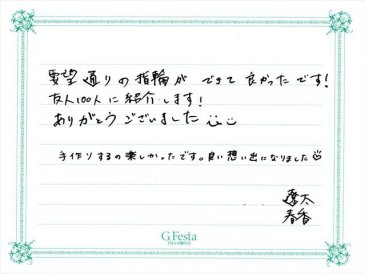 要望通りの指輪ができて良かったです!
友人100人に紹介します!
ありがとうございました
手作りするの楽しかったです。良い想い出になりました
遼太
春香
G.Festa
DIAMOND